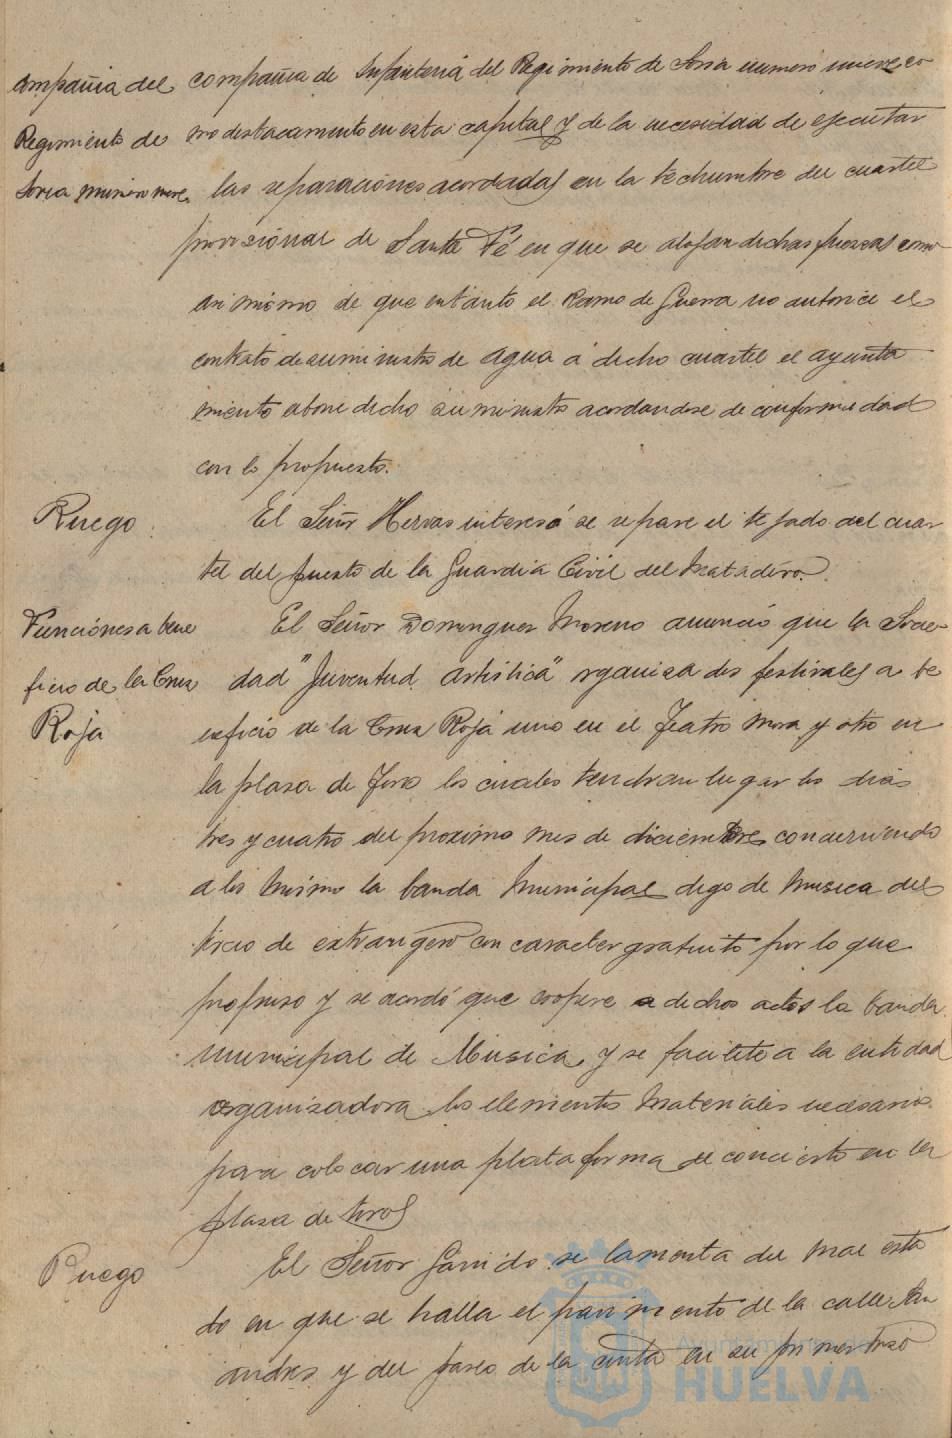 compañia del compañia de Infanteria del Regimiento de Soria numero nueve co
Regimiento de mo destacamento en esta capital y de la necesidad de ejecutar
Soria numero nueve. las reparaciones acordadas en la techumbre del cuartel
provisional de Santa Fé en que se alojan dichas fuerzas como
asi mismo de que en tanto el Ramo de Guerra no autorice el
contrato de suministro de agua á dicho cuartel el ayunta
miento abone dicho suministro acordandose de conformidad
con lo propuesto.
Ruego El Señor Hervas interesó se repare el tejado del cuar
tel del puesto de la Guardia Civil del Matadero.
Funciónes a bene El Señor Dominguez Moreno anunció que la Socie
ficio de la Cruz dad "Juventud Artistica" organiza dos festivales a be
Roja neficio de la Cruz Roja uno en el Teatro Mora y otro en
la plaza de Toros los cuales tendran lugar los dias
tres y cuatro del proximo mes de diciembre concurriendo
a los mismos la banda Municipal digo de Musica del
tercio de extrangero con caracter gratuito por lo que
propuso y se acordó que coopere a dichos actos la banda
municipal de Musica y se facilite a la entidad
organizadora los elementos materiales necesarios
para colocar una plataforma de concierto en la
plaza de toros
Ruego El Señor Garrido se lamenta del mal esta
do en que se halla el pavimento de la calle San
andres y del paseo de la cinta en su primer trozo
Ayuntamiento de
HUELVA